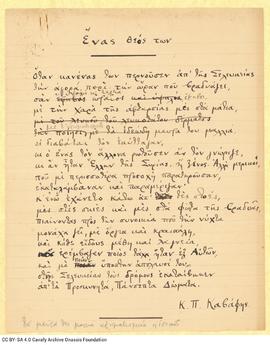 Ένας θεός των
Όταν κανένας των περνούσεν απ' της Σελευκείας
την αγορά, περί την ώρα που βραδυάζει,
σαν ωραίος
με την χαρά της αφθαρσίας μες στα μάτια,
με τ' μαλλιά,
οι διαβάται τον εκύτταζαν,
κι ο ένας τον άλλονα ρωτούσεν αν τον γνώριζε,
κι αν ήταν Έλλην της Συρίας, ή ξένος. Αλλά μερικοί,
που με περισσοτέρα προσοχή παρατηρούσαν,
εκαταλάμβαναν και παραμέριζαν·
κ' ενώ εχάνετο κάτω απ' τες στοές,
μες στες σκιές και μες στα φώτα της βραδυάς,
πιαίνοντας προς την συνοικία που την νύχτα
μονάχα ζει, με όργια και κραιπάλη,
και κάθε είδους μέθη και λαγνεία,
ερέμβαζαν ποιος τάχα ήταν εξ Αυτών,
και για ποιαν ύποπτην απόλαυσί του
στης Σελευκείας τους δρόμους εκατέβηκεν
απ' τα Προσκυνητά, Πάνσεπτα Δώματα.
Κ. Π. Καβάφης
CC BY-SA 4.0 Cavafy Archive Onassis Foundation